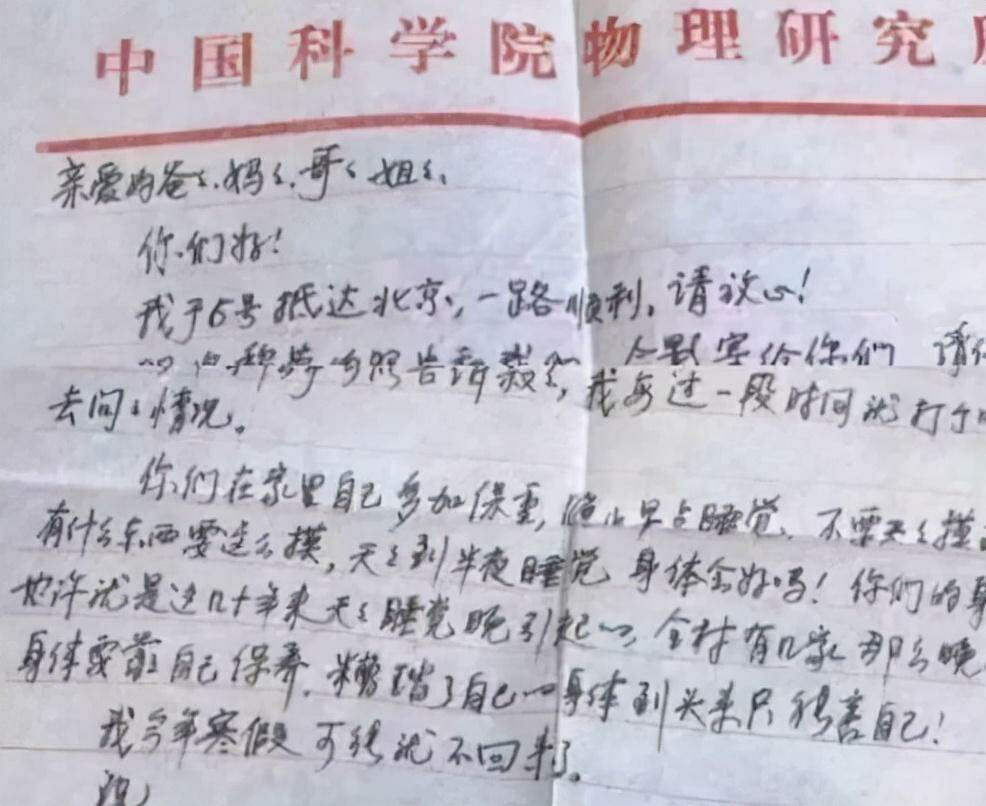 中国科学院物理研究
亲爱的爸〻、妈〻、哥〻、姐〻、
你们好！
我于6号抵达北京，一路顺利。请放心！
告诉 写给你们 请
去问〻情况。 我每过一段时间就打个
你们在家里自己多加保重，早点睡觉、不要天〻摸
有什么东西要这么摸，天〻到半夜睡觉 身体会好吗！你们的身
也许就是这几十年来天〻睡觉晚引起 全村有几家那么晚
身体要靠自己保养、糟蹋了自己 身体到头来只能害自己！
我今年寒假可能就不回来了。
祝